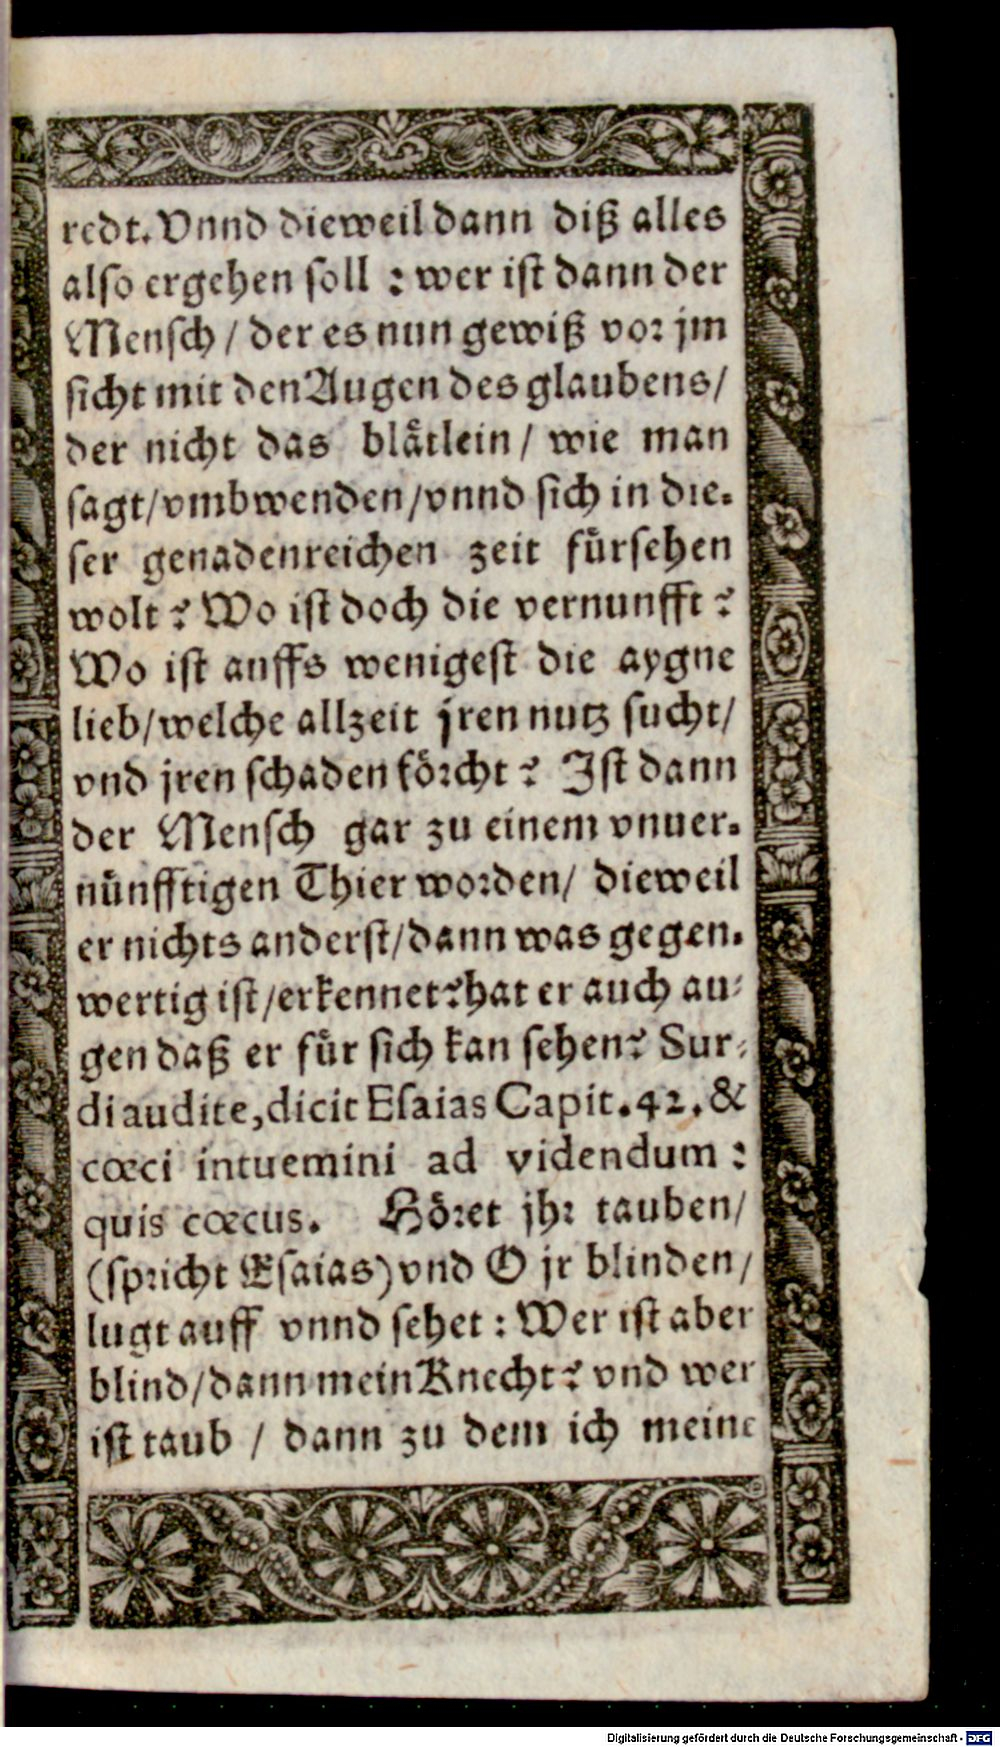 redt. Vnnd dieweil dann diß alles
also ergehen soll : wer ist dann der
Mensch / der es nun gewiß vor jm
sicht mit den Augen des glaubens /
der nicht das blåtlein / wie man
sagt / vmbwenden / vnnd sich in die-
ser genadenreichen zeit fürsehen
wolt ? Wo ist doch die vernunfft ?
Wo ist auffs wenigest die aygne
lieb / welche allzeit jren nutz sucht /
vnd jren schaden förcht ? Ist dann
der Mensch gar zu einem vnuer-
nünfftigen Thier worden / dieweil
er nichts anderst / dann was gegen-
wertig ist / erkennet ? hat er auch au-
gen daß er für sich kan sehen ? Sur-
di audite, dicit Esaias Capit. 42. &
cœci intuemini ad videndum :
quis cœcus. Höret jhr tauben /
(spricht Esaias) vnd O jr blinden /
lugt auff vnnd sehet : Wer ist aber
blind / dann mein Knecht ? vnd wer
ist taub / dann zu dem ich meine
Digitalisierung gefördert durch die Deutsche Forschungsgemeinschaft - DFG